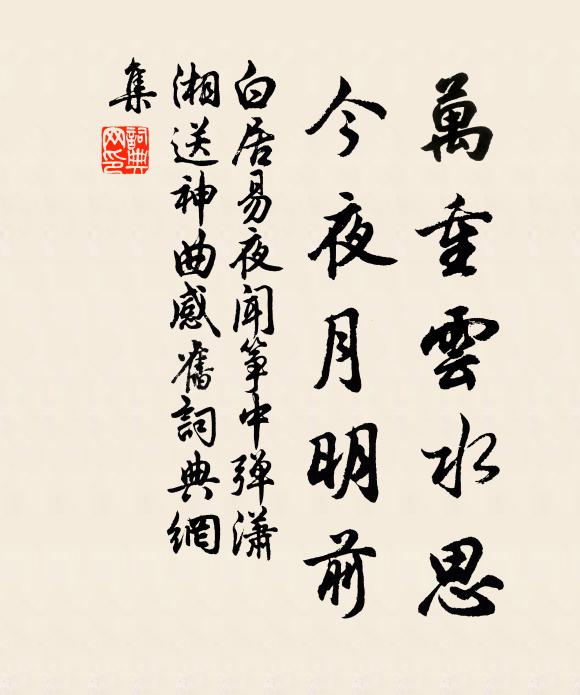 萬重雲水思
今夜月明前
白居易夜聞箏中弹瀟
湘送神曲感舊詞典網
集
詞典
网印